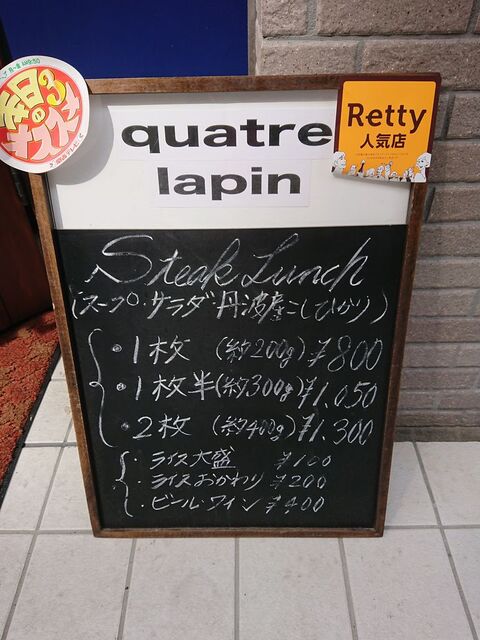 毎日の3
オススメ
quatre
lapin
Retty
人気店
Steak Lunch
(スープ・サラダ 丹波産こしひかり)
・1枚 (約200g) ¥800
・1枚半(約300g) ¥1,050
・2枚 (約400g) ¥1,300
・ライス大盛 ¥100
・ライスおかわり ¥200
・ビール・ワイン ¥400